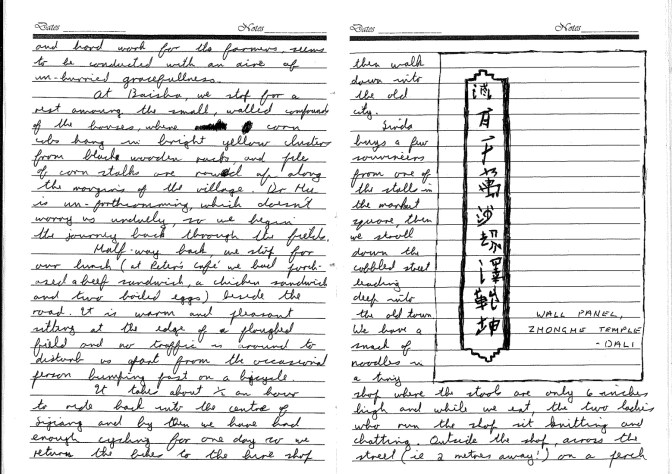 Dates Notes
and hard work for the farmers, seems
to be conducted with an aire of
un-hurried gracefullness.
At Baisha, we stop for a
rest amoung the small, walled compounds
of the houses, where corn
cobs hang in bright yellow clusters
from black wooden racks, and pile
of corn stalks are rowed up along
the margins of the village. Dr Hu
is un-forthcomming, which doesn't
worry us unduely, so we begin
the journey back through the fields.
Half-way back we stop for
our lunch (at Peter's Café we had purch-
ased a beef sandwich, a chicken sandwich
and two boiled eggs) beside the
road. It is warm and pleasant
sitting at the edge of a ploughed
field and no traffic is around to
disturb us apart from the occasional
person bumping past on a bicycle.
It takes about ½ an hour
to ride back into the centre of
Lijiang and by then we have had
enough cycling for one day so we
return the bikes to the hire shop
Dates Notes
then walk
down into
the old
city.
Linda
buys a few
souvenirs
from one of
the stalls in
the market
square, then
we stroll
down the
cobbled street
leading
deep into
the old town
We have a
snack of
noodles in
a tiny
百
千
萬
沙
劫
澤
乾
坤
WALL PANEL,
ZHONGHE TEMPLE
- DALI
shop where the stools are only 6 inches
high and while we eat, the two ladies
who run the shop sit knitting and
chatting. Outside the shop, across the
street (ie 2 metres away!) on a perch